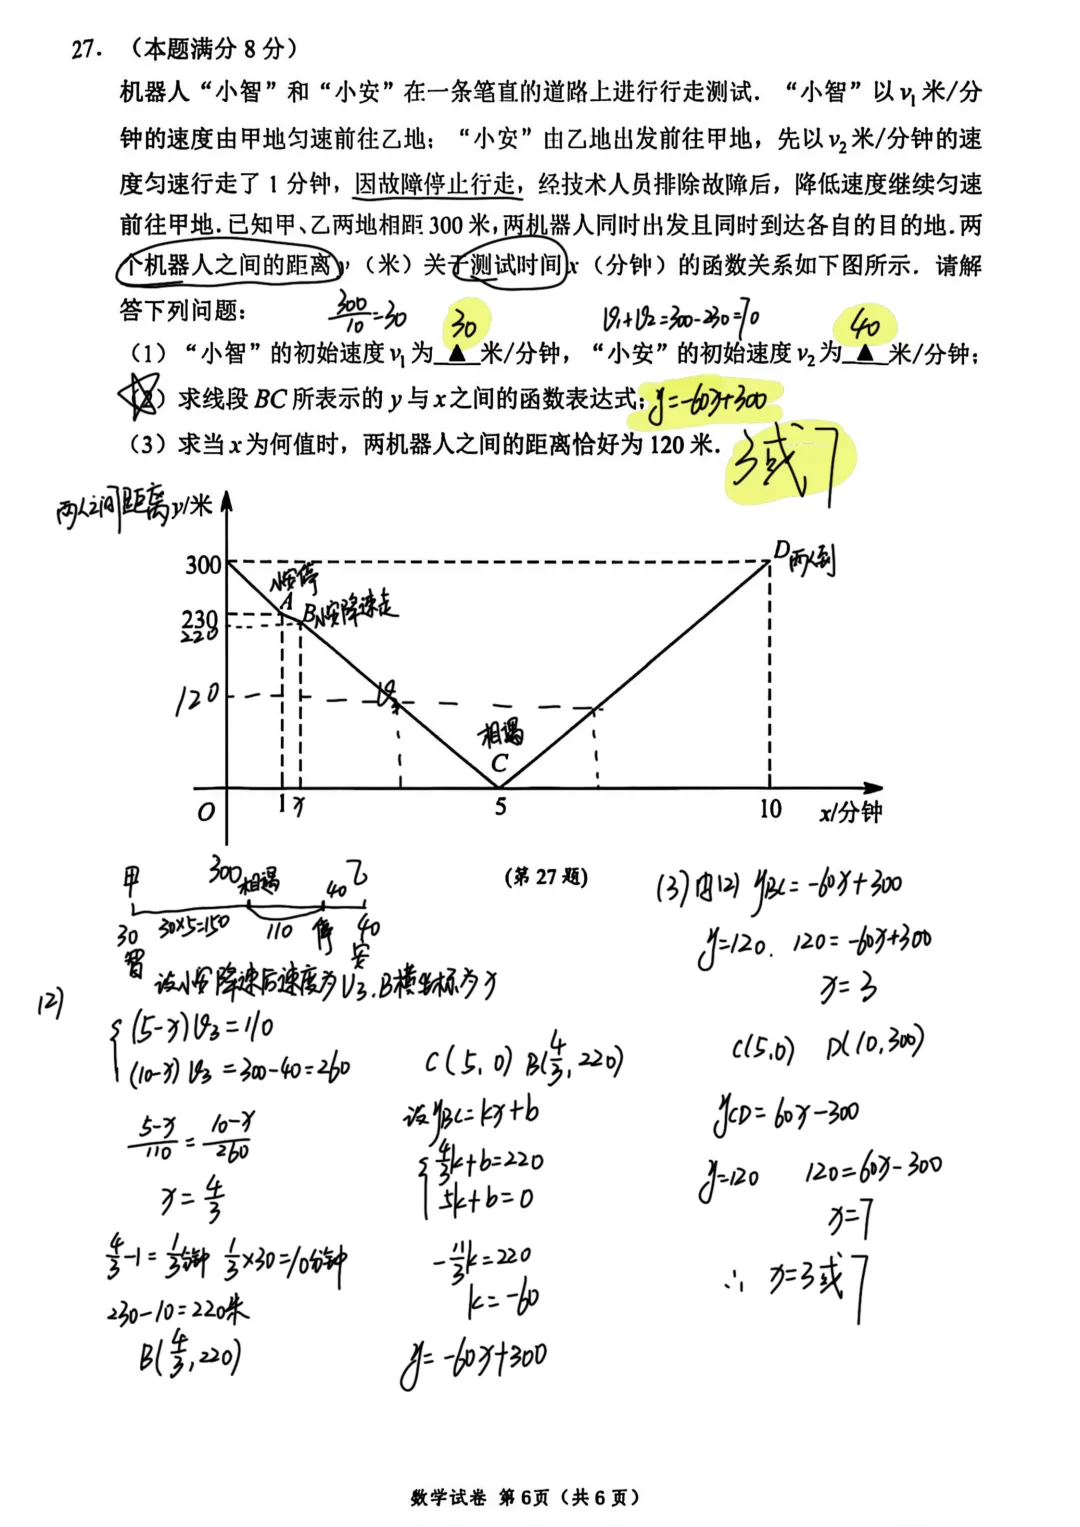 27. （本题满分8分）
机器人“小智”和“小安”在一条笔直的道路上进行行走测试. “小智”以v₁米/分
钟的速度由甲地匀速前往乙地；“小安”由乙地出发前往甲地，先以v₂米/分钟的速
度匀速行走了1分钟，因故障停止行走，经技术人员排除故障后，降低速度继续匀速
前往甲地.已知甲、乙两地相距300米,两机器人同时出发且同时到达各自的目的地.两
个机器人之间的距离y（米）关于测试时间x（分钟）的函数关系如下图所示. 请解
答下列问题：
300/10=30 30 v₁+v₂=300-230=70 40
（1）“小智”的初始速度v₁为▲米/分钟，“小安”的初始速度v₂为▲米/分钟；
（2）求线段BC所表示的y与x之间的函数表达式；y=-60x+300
（3）求当x为何值时，两机器人之间的距离恰好为120米. 3或7
两人之间距离y/米
300 D两人到
小安停
A
230 B小安降速走
220
120 v₃
相遇
C
O 1 x 5 10 x/分钟
(第27题)
甲 300 相遇 40 乙
30 30×5=150 110 停 40
智 安
(2) 设小安降速后速度为v₃.B横坐标为x
{(5-x)v₃=110
(10-x)v₃=300-40=260
5-x/110=10-x/260
x=4/3
4/3-1=1/3分钟 1/3×30=10分钟
230-10=220米
B(4/3,220)
C(5,0) B(4/3,220)
设yBC=kx+b
{4/3k+b=220
5k+b=0
-11/3k=220
k=-60
y=-60x+300
(3)由(2) yBC=-60x+300
y=120. 120=-60x+300
x=3
C(5,0) D(10,300)
yCD=60x-300
y=120 120=60x-300
x=7
∴ x=3或7
数学试卷 第6页（共6页）